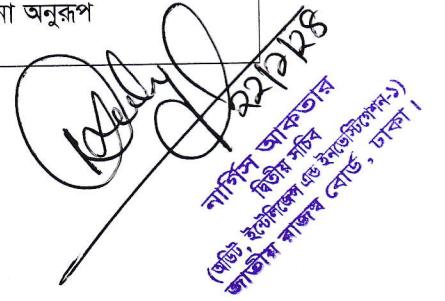 না অনুরূপ
২২/১/২৪
নার্গিস আকতার
দ্বিতীয় সচিব
(অডিট, ইন্টেলিজেন্স এন্ড ইনভেস্টিগেশন-১)
জাতীয় রাজস্ব বোর্ড, ঢাকা।